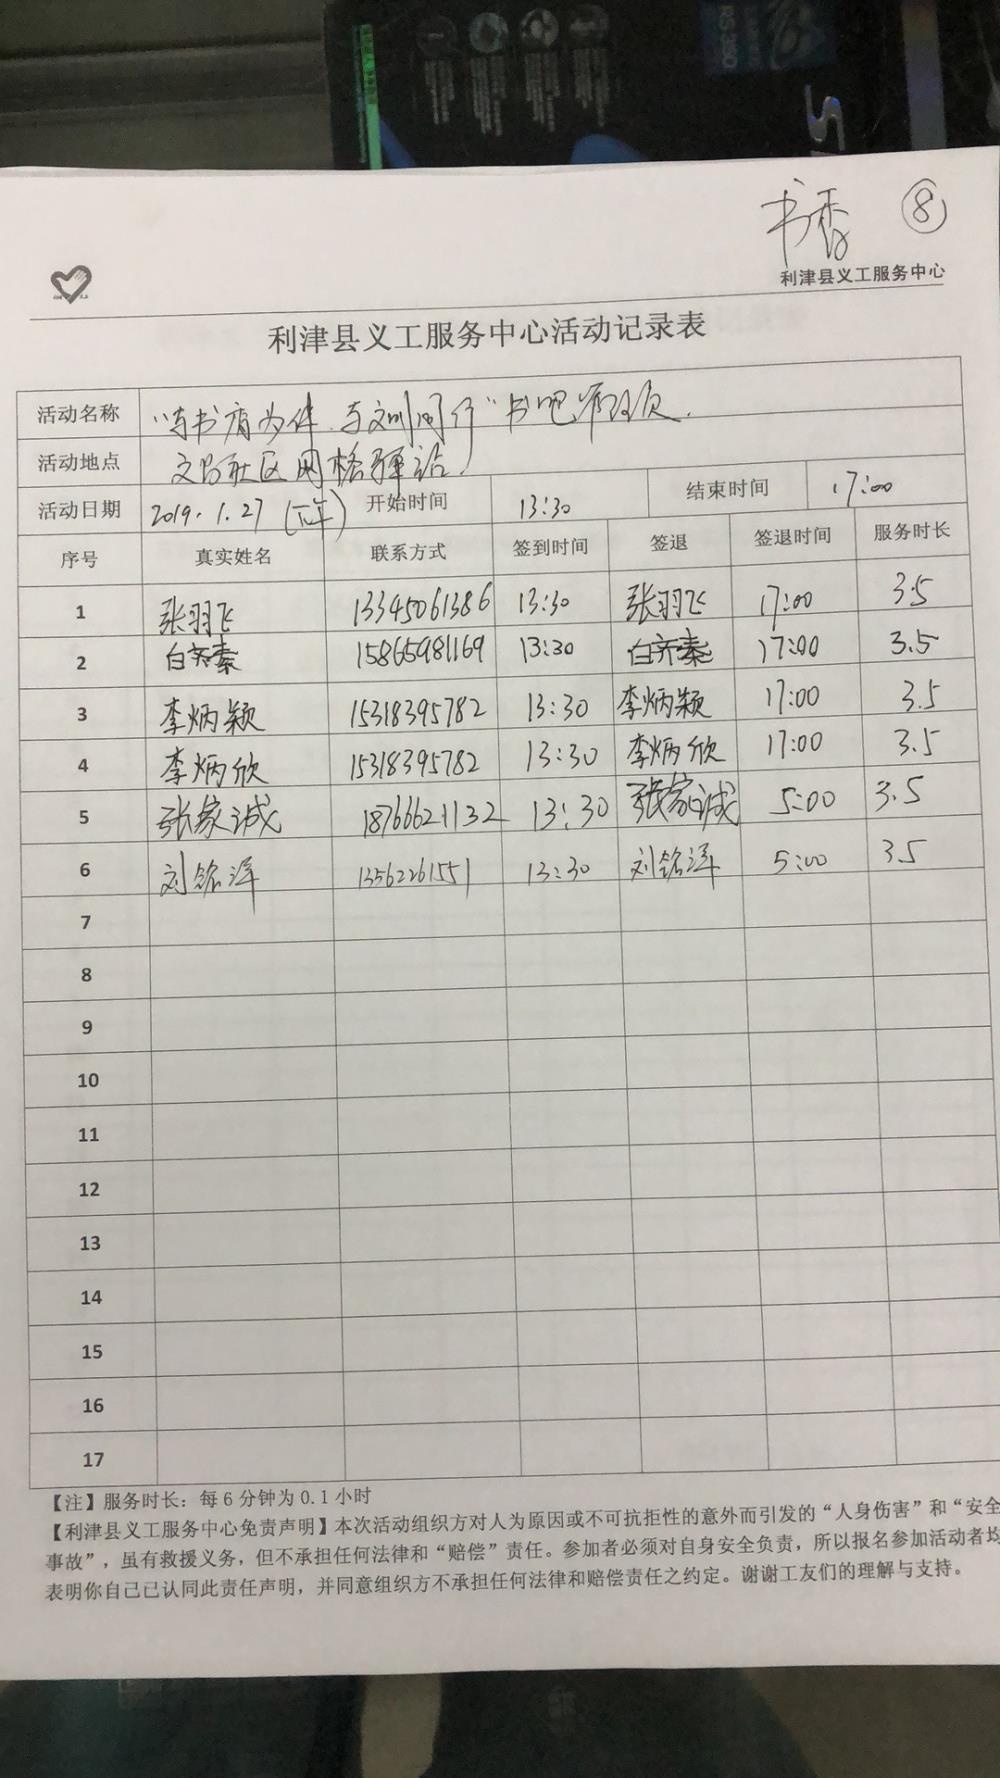 RS 330
书香 ⑧
利津县义工服务中心
利津县义工服务中心活动记录表
活动名称 "与书香为伴 与文明同行"书吧
活动地点 文昌社区网格驿站
活动日期 2019.1.27(下午) 开始时间 13:30 结束时间 17:00
序号 真实姓名 联系方式 签到时间 签退 签退时间 服务时长
1 张羽飞 13345061386 13:30 张羽飞 17:00 3.5
2 白齐秦 15865981169 13:30 白齐秦 17:00 3.5
3 李炳颖 15318395782 13:30 李炳颖 17:00 3.5
4 李炳欣 15318395782 13:30 李炳欣 17:00 3.5
5 张家诚 18766621132 13:30 张家诚 5:00 3.5
6 刘铭泽 13562261551 13:30 刘铭泽 5:00 3.5
7
8
9
10
11
12
13
14
15
16
17
【注】服务时长：每6分钟为0.1小时
【利津县义工服务中心免责声明】本次活动组织方对人为原因或不可抗拒性的意外而引发的“人身伤害”和“安全
事故”，虽有救援义务，但不承担任何法律和“赔偿”责任。参加者必须对自身安全负责，所以报名参加活动者均
表明你自己已认同此责任声明，并同意组织方不承担任何法律和赔偿责任之约定。谢谢工友们的理解与支持。